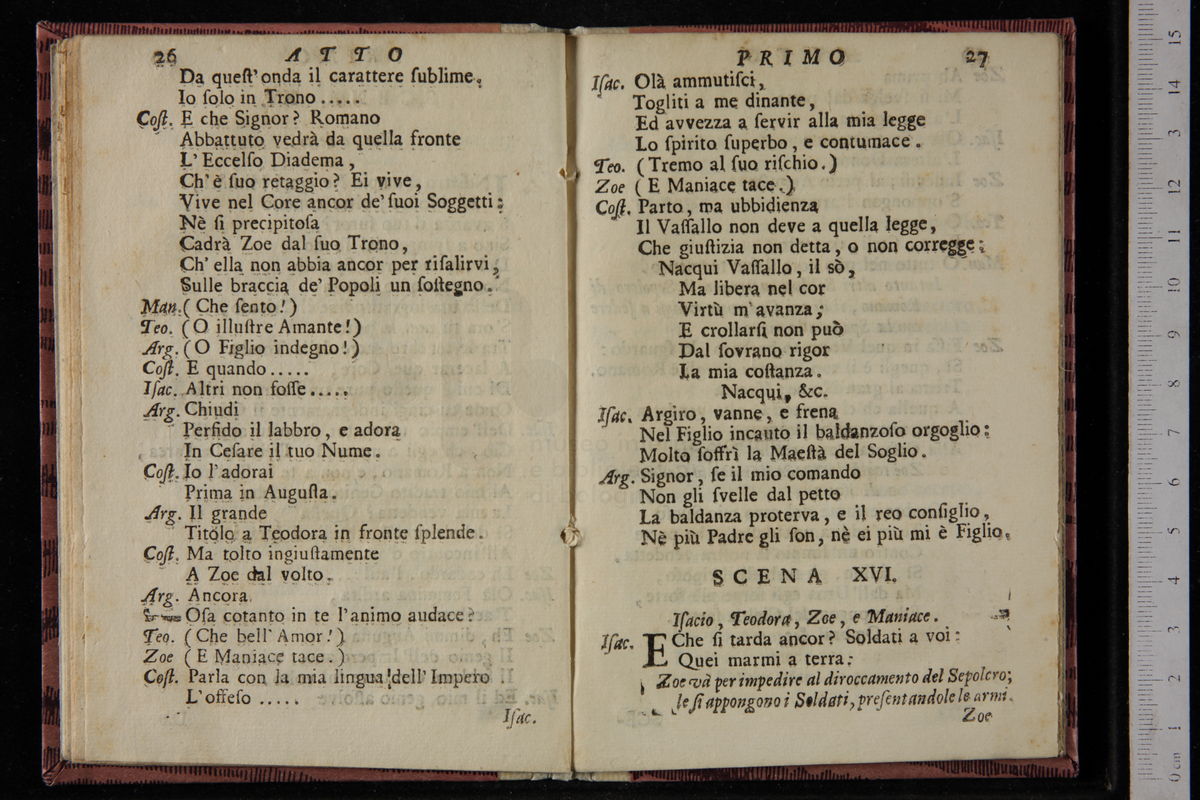 26 ATTO
Da queſt' onda il carattere ſublime.
Io ſolo in Trono .....
Coſt. E che Signor? Romano
Abbattuto vedrà da quella fronte
L' Eccelſo Diadema,
Ch' è ſuo retaggio? Ei vive,
Vive nel Core ancor de' ſuoi Soggetti:
Nè ſi precipitoſa
Cadrà Zoe dal ſuo Trono,
Ch' ella non abbia ancor per riſalirvi,
Sulle braccia de' Popoli un ſoſtegno.
Man. (Che ſento!)
Teo. (O illuſtre Amante!)
Arg. (O Figlio indegno!)
Coſt. E quando .....
Iſac. Altri non foſſe .....
Arg. Chiudi
Perfido il labbro, e adora
In Ceſare il tuo Nume.
Coſt. Io l'adorai
Prima in Auguſta.
Arg. Il grande
Titolo a Teodora in fronte ſplende.
Coſt. Ma tolto ingiuſtamente
A Zoe dal volto.
Arg. Ancora
Oſa cotanto in te l'animo audace?
Teo. (Che bell' Amor!)
Zoe (E Maniace tace.)
Coſt. Parla con la mia lingua dell' Impero
L'offeſo .....
Iſac.
PRIMO 27
Iſac. Olà ammutiſci,
Togliti a me dinante,
Ed avvezza a ſervir alla mia legge
Lo ſpirito ſuperbo, e contumace.
Teo. (Tremo al ſuo riſchio.)
Zoe (E Maniace tace.)
Coſt. Parto, ma ubbidienza
Il Vaſſallo non deve a quella legge,
Che giuſtizia non detta, o non corregge:
Nacqui Vaſſallo, il sò,
Ma libera nel cor
Virtù m'avanza;
E crollarſi non può
Dal ſovrano rigor
La mia coſtanza.
Nacqui, &c.
Iſac. Argiro, vanne, e frena
Nel Figlio incauto il baldanzoſo orgoglio:
Molto ſoffrì la Maeſtà del Soglio.
Arg. Signor, ſe il mio comando
Non gli ſvelle dal petto
La baldanza proterva, e il reo conſiglio,
Nè più Padre gli ſon, nè ei più mi è Figlio.
SCENA XVI.
Iſacio, Teodora, Zoe, e Maniace.
Iſac. E Che ſi tarda ancor? Soldati a voi:
Quei marmi a terra:
Zoe và per impedire al diroccamento del Sepolcro;
le ſi appongono i Soldati, preſentandole le armi.
Zoe
0 cm 1 2 3 4 5 6 7 8 9 10 11 12 13 14 15